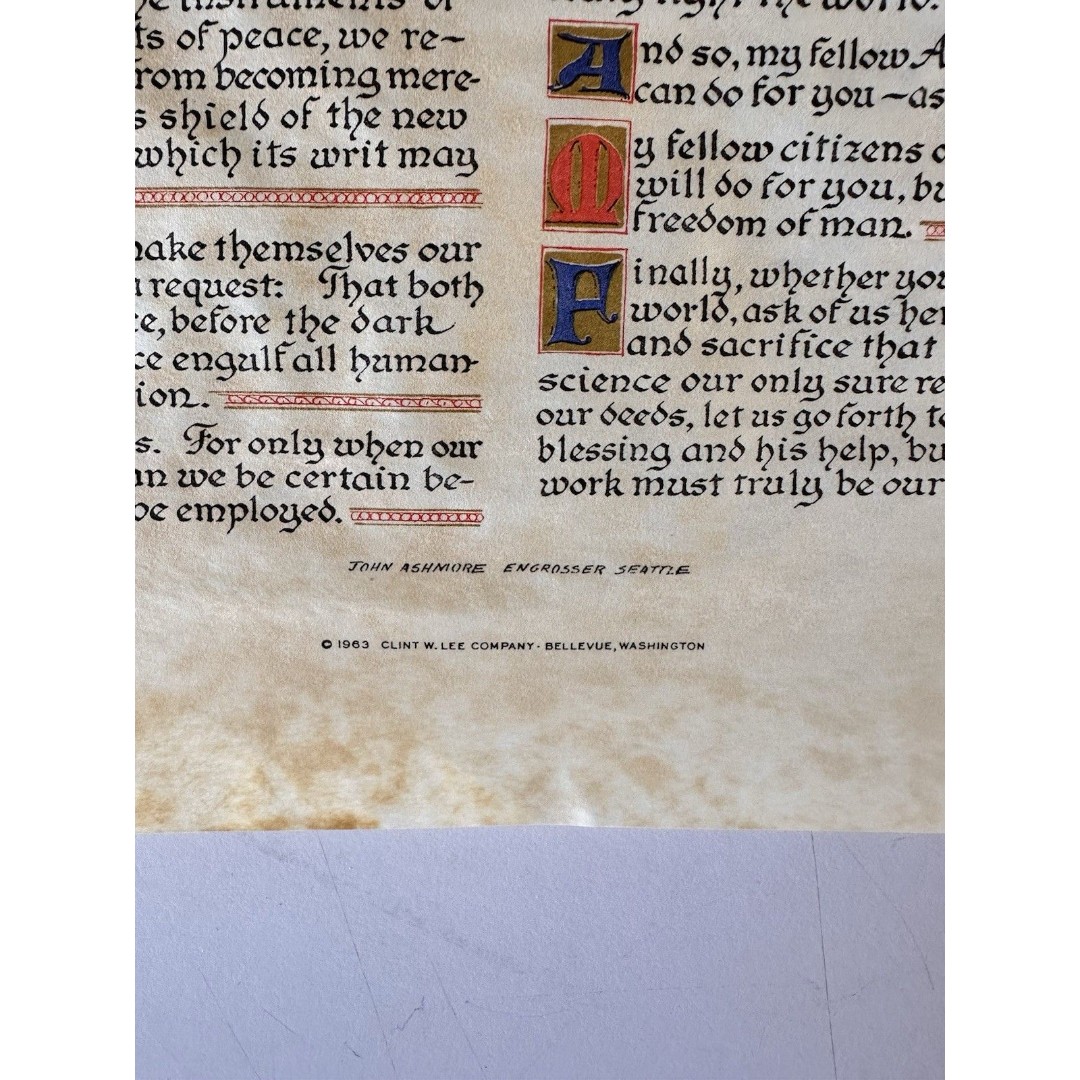 the instruments of
ts of peace, we re-
from becoming mere-
s shield of the new
which its writ may
make themselves our
request: That both
e, before the dark
ce engulf all human-
ion.
s. For only when our
an we be certain be-
be employed.
right the world.
And so, my fellow A
can do for you - as
My fellow citizens o
will do for you, bu
freedom of man.
Finally, whether you
world, ask of us her
and sacrifice that
science our only sure re
our deeds, let us go forth to
blessing and his help, bu
work must truly be our
JOHN ASHMORE ENGROSSER SEATTLE
© 1963 CLINT W. LEE COMPANY · BELLEVUE, WASHINGTON